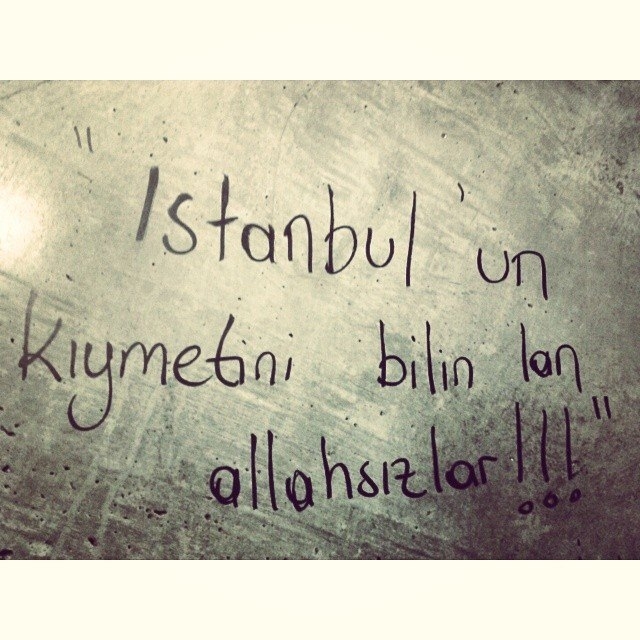 "Istanbul'un
kıymetini bilin lan
allahsızlar!!!"